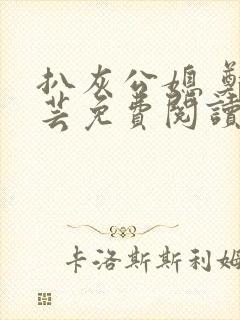 扒灰公媳
芸免费阅读
卡洛斯斯利姆